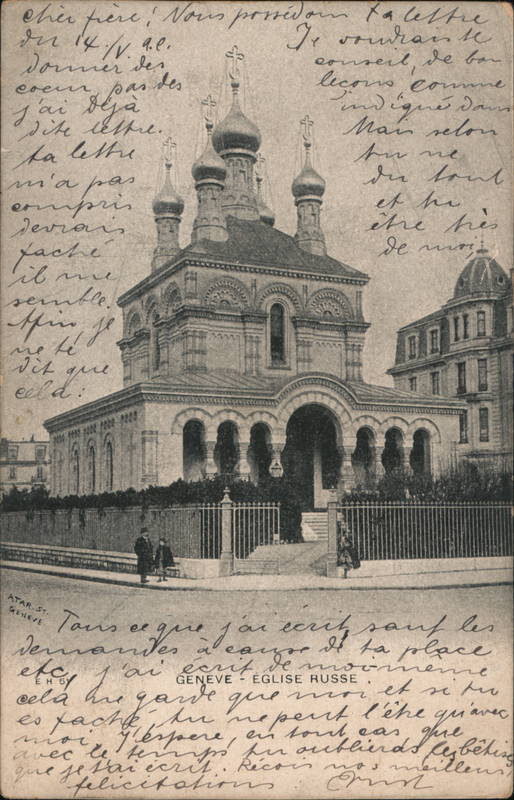 cher frère! Nous possédons ta lettre
du 14.V
Je voudrais te
donner des
conseil, de bon
coeur, pas des
leçons, comme
j'ai déjà
indiqué dans
dite lettre.
Mais selon
ta lettre
tu ne
m'a pas
du tout
compris
et tu
devrais
être très
faché
de moi,
il me
semble.
Afin, je
ne té
dit que
cela:
ATAR. S.A.
GENÈVE
Tous ce que j'ai écrit, sauf les
demandes à cause de ta place
etc, j'ai écrit de moi-même
GENÈVE - ÉGLISE RUSSE.
cela me garde que moi et si tu
es faché, tu ne pent l'être qu'avec
moi. J'espère, en tout cas que
avec le temps tu oublieras les bêtises
que je t'ai écrit. Reçois nos meilleurs
felicitations